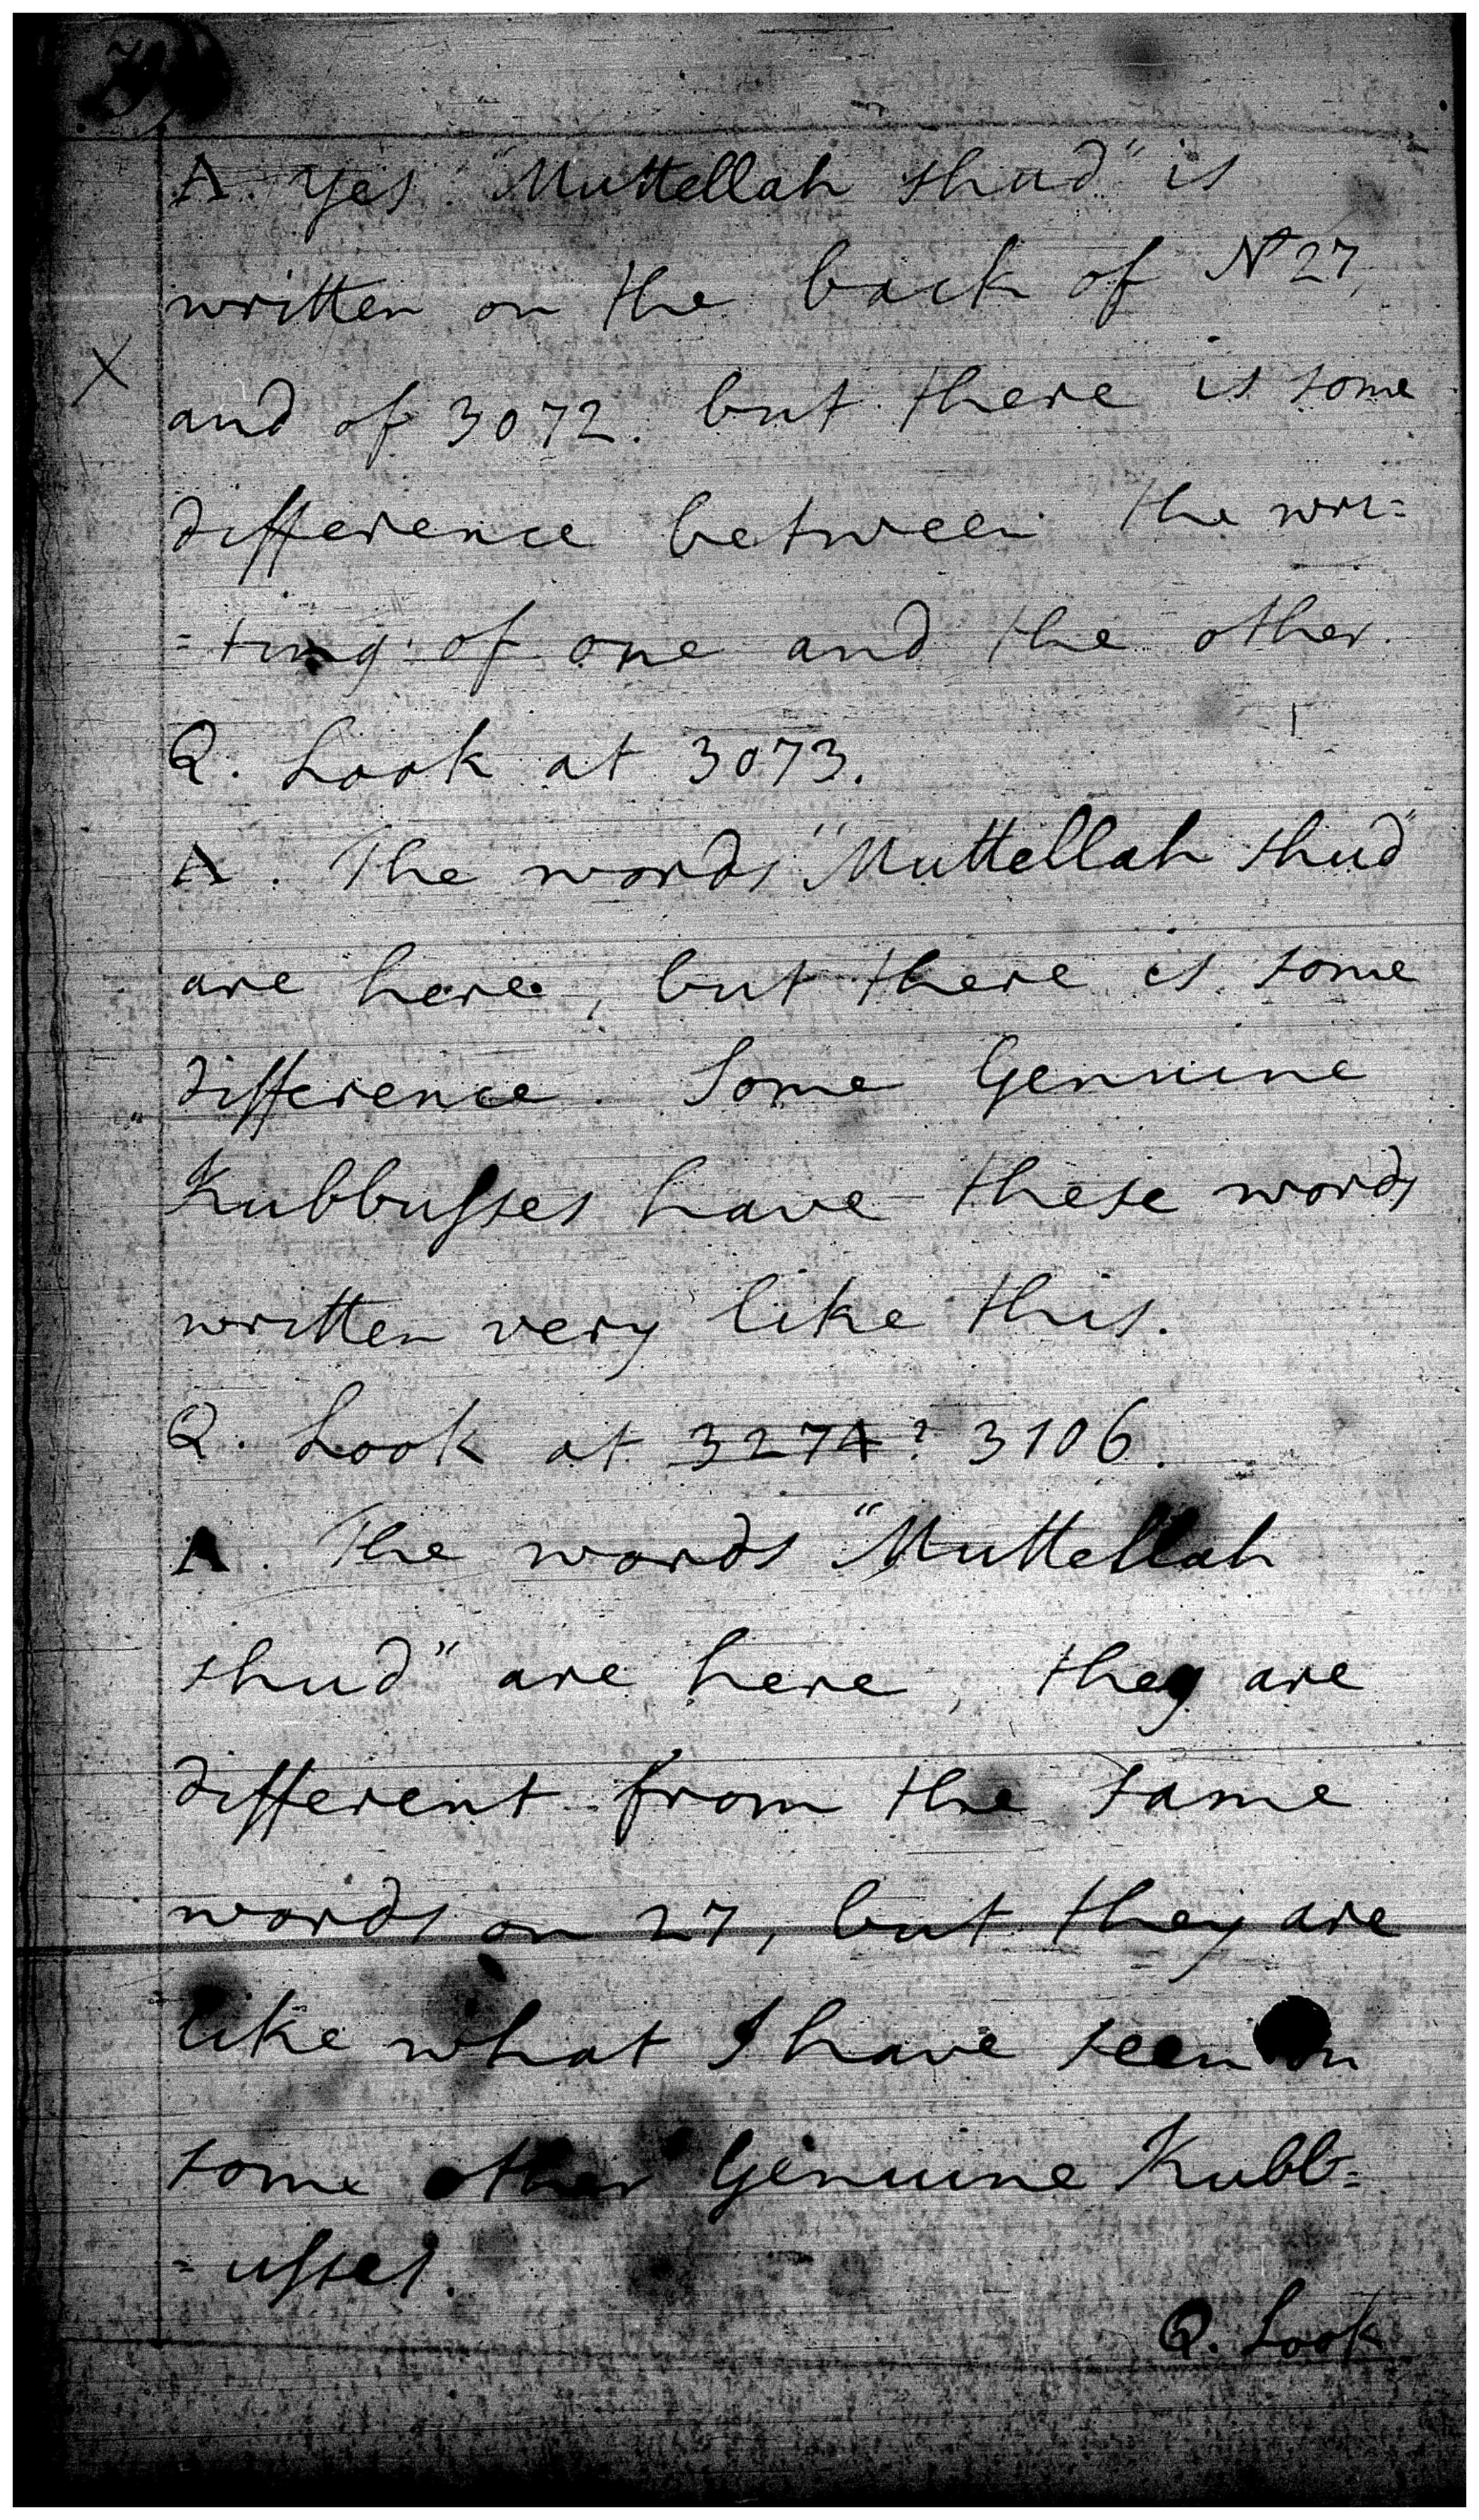 A. Yes "Muttellah shud" is
written on the back of No 27,
and of 3072. but there is some
difference between the wri=
=ting of one and the other.
Q. Look at 3073.
A. The words "Muttellah shud"
are here, but there is some
difference. Some Genuine
Kubbusses have these words
written very like this.
Q. Look at 3274? 3106.
A. The words "Muttellah
shud" are here, they are
different from the same
words on 27, but they are
like what I have seen on
some other Genuine Kubb=
=usses.
Q. Look